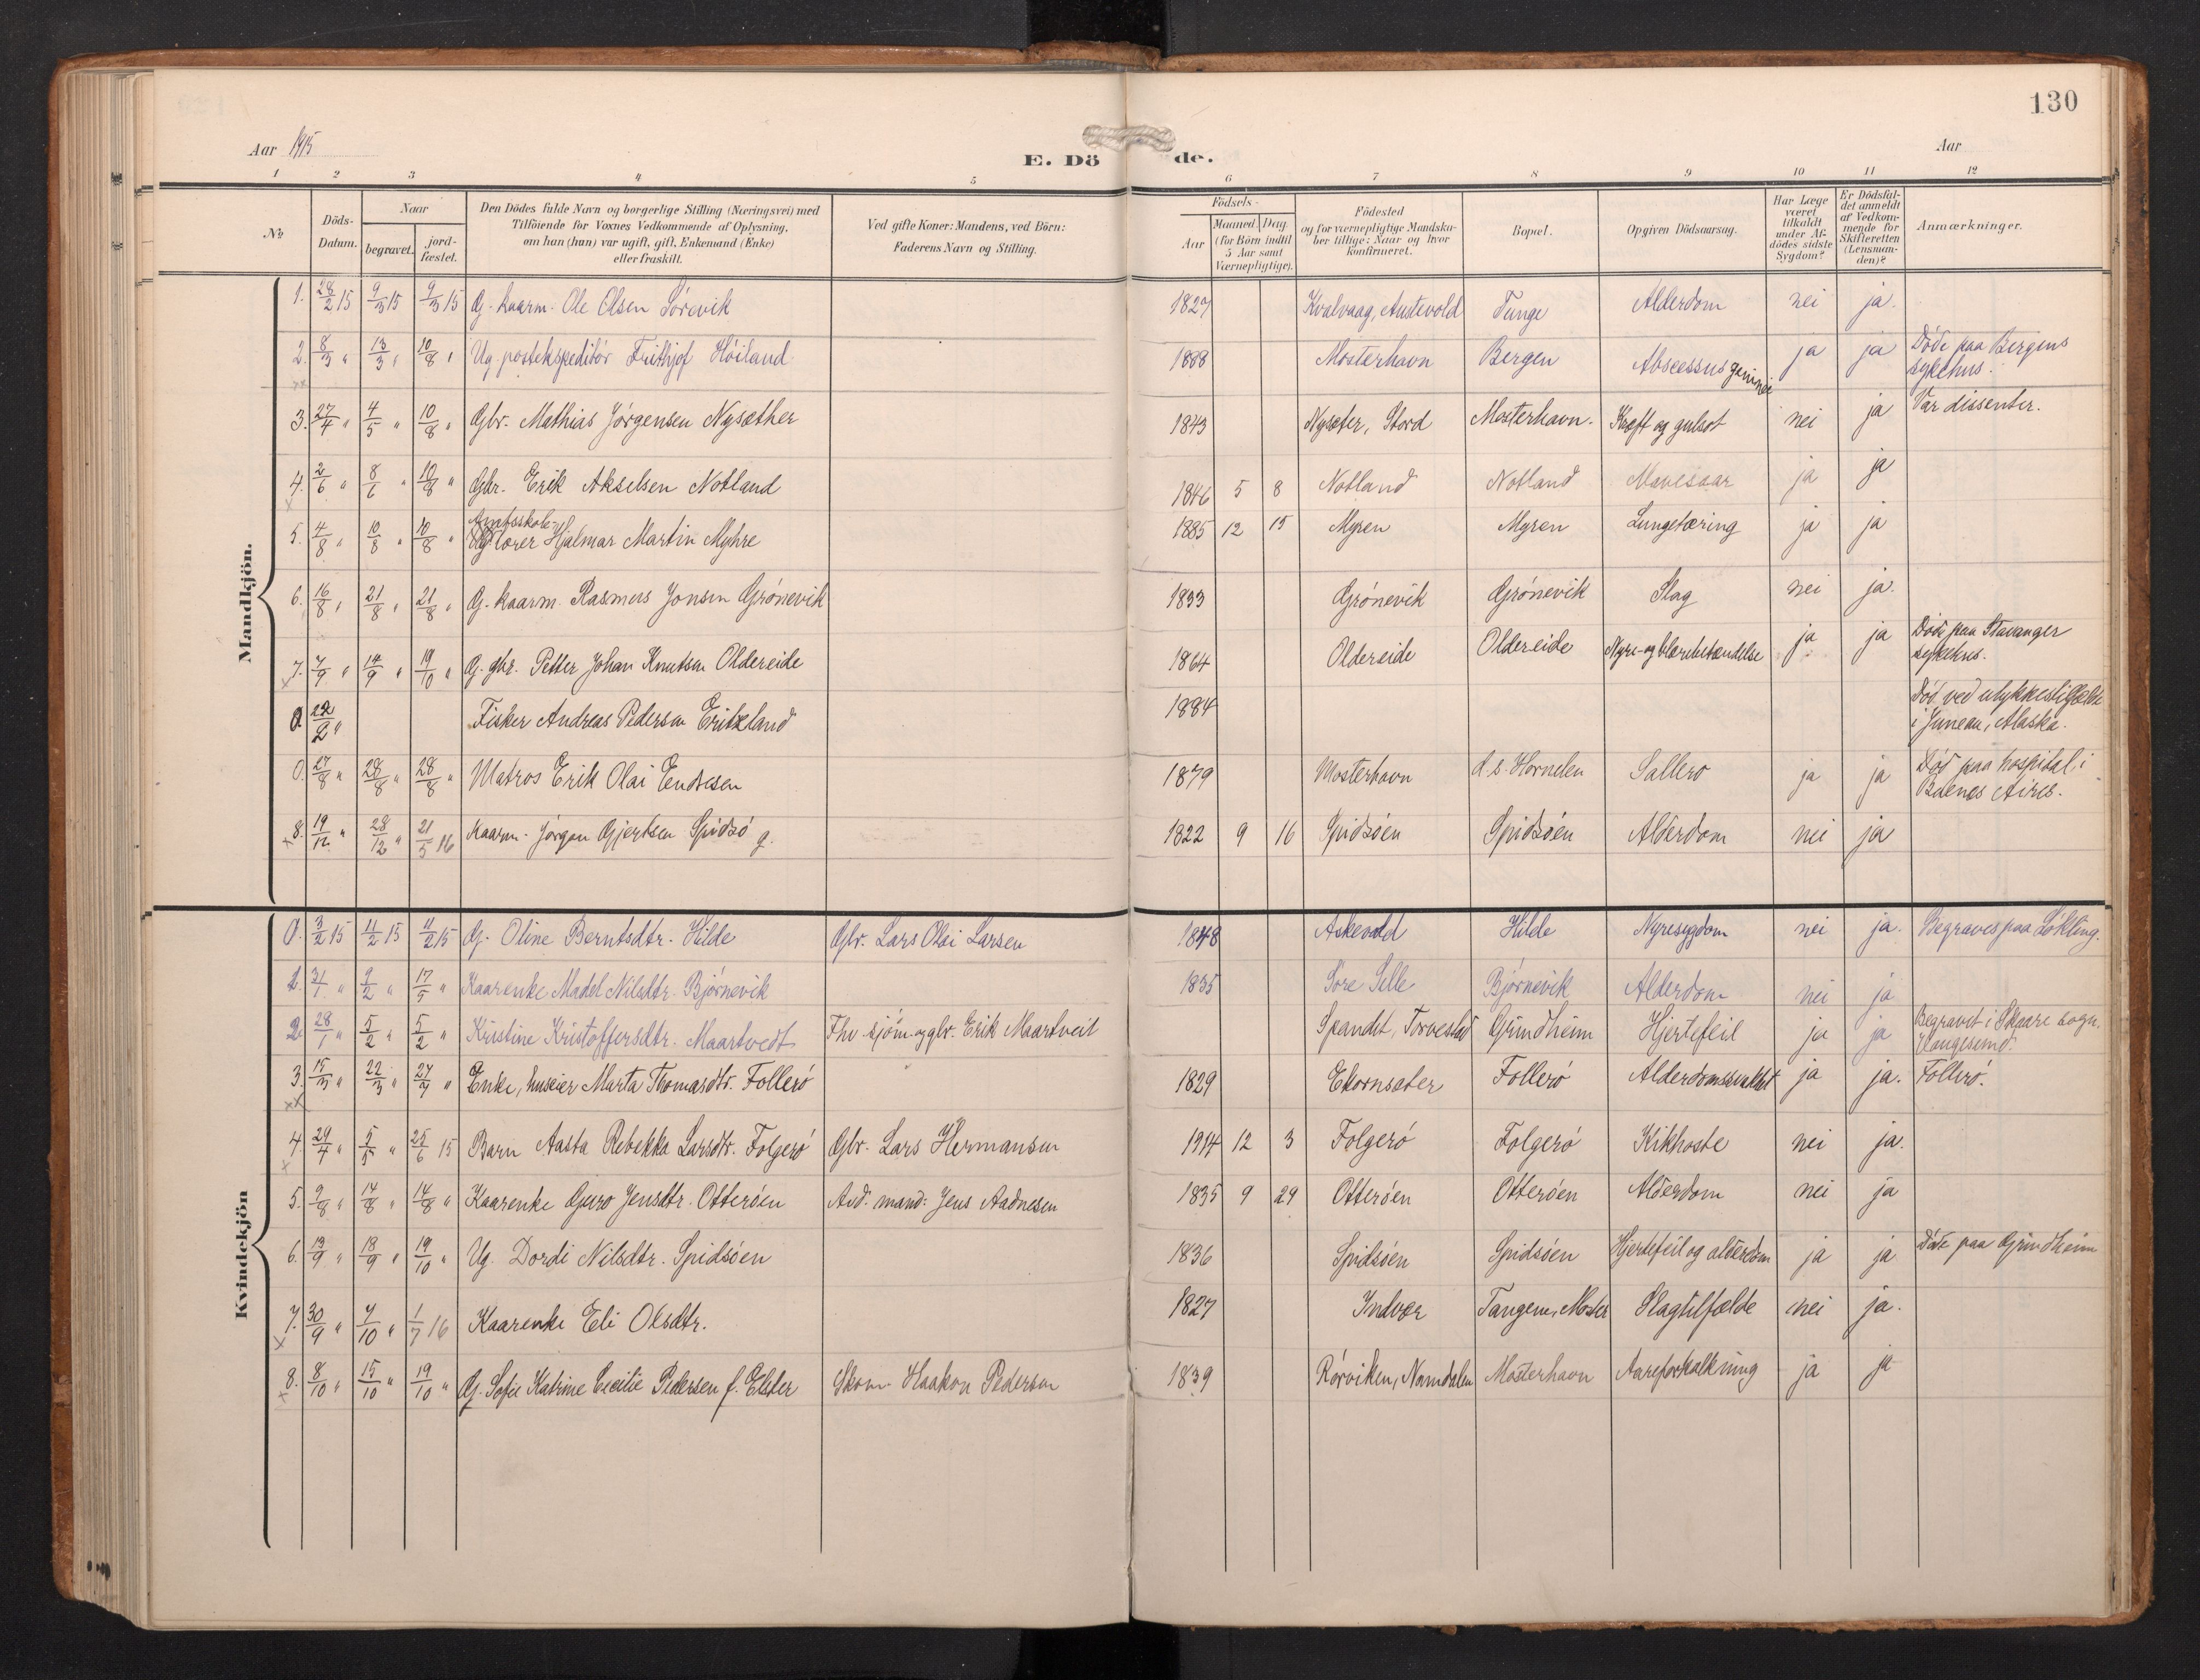 130
Aar 1915
E. Dö de.
Aar
1 2 3 4 5 6 7 8 9 10 11 12
No
Döds-Datum.
Naar
begravet.
jord-fæstet.
Den Dödes fulde Navn og borgerlige Stilling (Næringsvei) med
Tilföiende for Voxnes Vedkommende af Oplysning,
om han (hun) var ugift, gift, Enkemand (Enke)
eller fraskilt.
Ved gifte Koner: Mandens, ved Börn:
Faderens Navn og Stilling.
Födsels-
Aar
Maaned. Dag.
(for Börn indtil
5 Aar samt
Værnepligtige).
Födested
og for værnepligtige Mandska-
ber tillige: Naar og hvor
konfirmeret.
Bopæl.
Opgiven Dödsaarsag.
Har Læge
været
tilkaldt
under Af-
dödes sidste
Sygdom?
Er Dödsfal-
det anmeldt
af Vedkom-
mende for
Skifteretten
(Lensman-
den)?
Anmærkninger.
Mandkjön.
1. 28/2 15 9/3 15 9/3 15 G. kaarm. Ole Olsen Sørevik 1827 Kvalvaag, Austevold Tunge Alderdom nei ja.
2. 8/3 " 13/3 " 10/8 " Ug. postekspeditör Frithjof Höiland 1888 Mosterhavn Bergen Abscessus ja ja Döde paa Bergens sykehus.
3. 27/4 " 4/5 " 10/8 " Gbr. Mathias Jörgensen Nysæther 1843 Nysæter, Stord Mosterhavn. Kræft og gulsot nei ja Var dissenter.
4. 2/6 " 8/6 " 10/8 " Gbr. Erik Akselsen Notland 1846 5 8 Notland Notland Mavesaar ja ja
5. 4/8 " 10/8 " 10/8 " Amtsskole-
lærer Hjalmar Martin Myhre 1885 12 15 Myren Myren Lungetæring ja ja
6. 16/8 " 21/8 " 21/8 " G. kaarm. Rasmus Jonsen Grönevik 1833 Grönevik Grönevik Slag nei ja.
7. 7/9 " 14/9 " 19/10 " G. gbr. Petter Johan Knutsen Oldereide 1864 Oldereide Oldereide Nyre- og blærebetændelse ja ja Döde paa Stavanger sykehus.
0. 22/2 " Fisker Andreas Pedersen Eritzland 1884 Död ved ulykkestilfælde i Juneau, Alaska.
0. 27/8 " 28/8 " 28/8 " Matros Erik Olai Endresen 1879 Mosterhavn d.s. Hornelen ja ja Död paa hospital i Buenos Aires.
8. 19/12 " 28/12 " 21/5 16 Kaarm. Jörgen Gjertsen Spidsö g. 1822 9 16 Spidsöen Spidsöen Alderdom nei ja
Kvindekjön
0. 3/2 15 11/2 15 11/2 15 G. Oline Berntsdtr. Hilde Gbr. Lars Olai Larsen 1848 Askevold Hilde Nyresygdom nei ja. Begraves paa Lökling.
1. 31/1 " 9/2 " 17/5 " Kaarenke Madel Nilsdtr. Björnevik 1835 Söre Selle Björnevik Alderdom nei ja
2. 28/1 " 5/2 " 5/2 " Kristine Kristoffersdtr. Maartvedt Fhv. sjöm. og gbr. Erik Maartveit Torvestad Grindheim Hjertefeil ja ja Begravet i Skaare sogn. Haugesund.
3. 15/3 " 22/3 " 27/7 " Enke, huseier Marta Thomasdtr. Follerö 1829 Ekornsæter Follerö Alderdomssvakhet ja ja. Follerö.
4. 29/4 " 5/5 " 25/6 15 Barn Aasta Rebekka Larsdtr. Folgerö Gbr. Lars Hermansen 1914 12 3 Folgerö Folgerö Kikhoste nei ja.
5. 9/8 " 14/8 " 14/8 " Kaarenke Guro Jensdtr. Otteröen Avd. mand: Jens Aadnesen 1835 9 29 Otteröen Otteröen Alderdom nei ja
6. 13/9 " 18/9 " 19/10 " Ug. Dordi Nilsdtr. Spidsöen 1836 Spidsöen Spidsöen Hjertefeil og alderdom ja ja Döde paa Grindheim
7. 30/9 " 7/10 " 1/7 16 Kaarenke Eli Olsdtr. 1827 Indvær Tangene, Moster Slagtilfælde nei ja.
8. 8/10 " 15/10 " 19/10 " G. Sofie Katrine Cecilie Pedersen f. Elster Skom. Haakon Pedersen 1839 Rörviken, Namdalen Mosterhavn Aareforkalkning ja ja